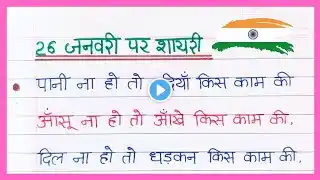 26 जनवरी पर शायरी
पानी ना हो तो दियाँ किस काम की
आँसू ना हो तो आँखे किस काम की.
दिल ना हो तो धड़कन किस काम की.